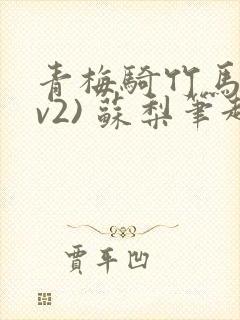 青梅騎竹馬
v2) 蘇梨筆趣
賈平凹